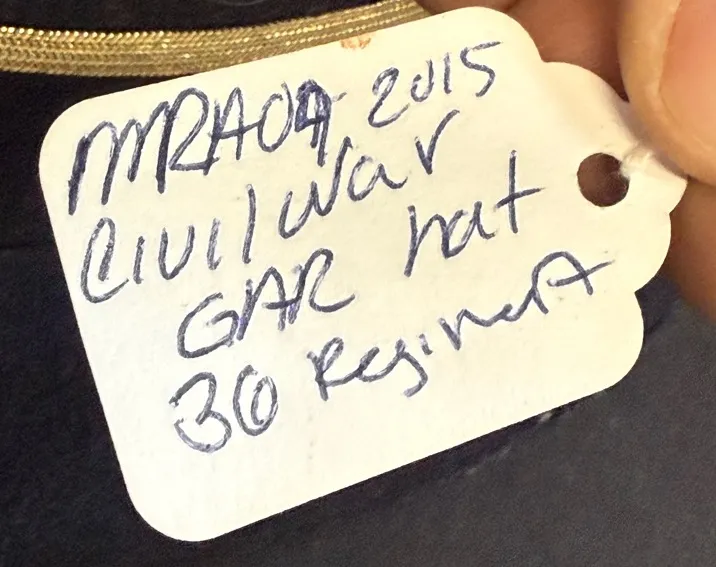 MRA09 2015
Civil War
GAR hat
30 Regiment